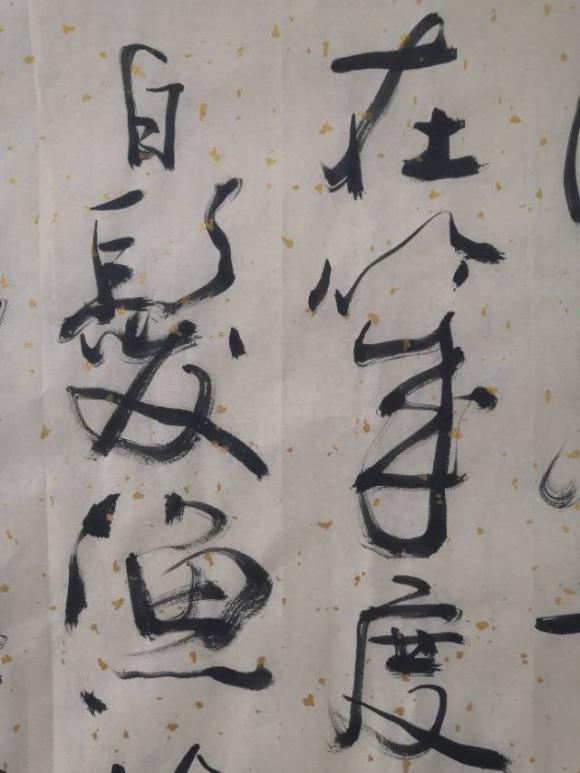 在幾度
白髮漁